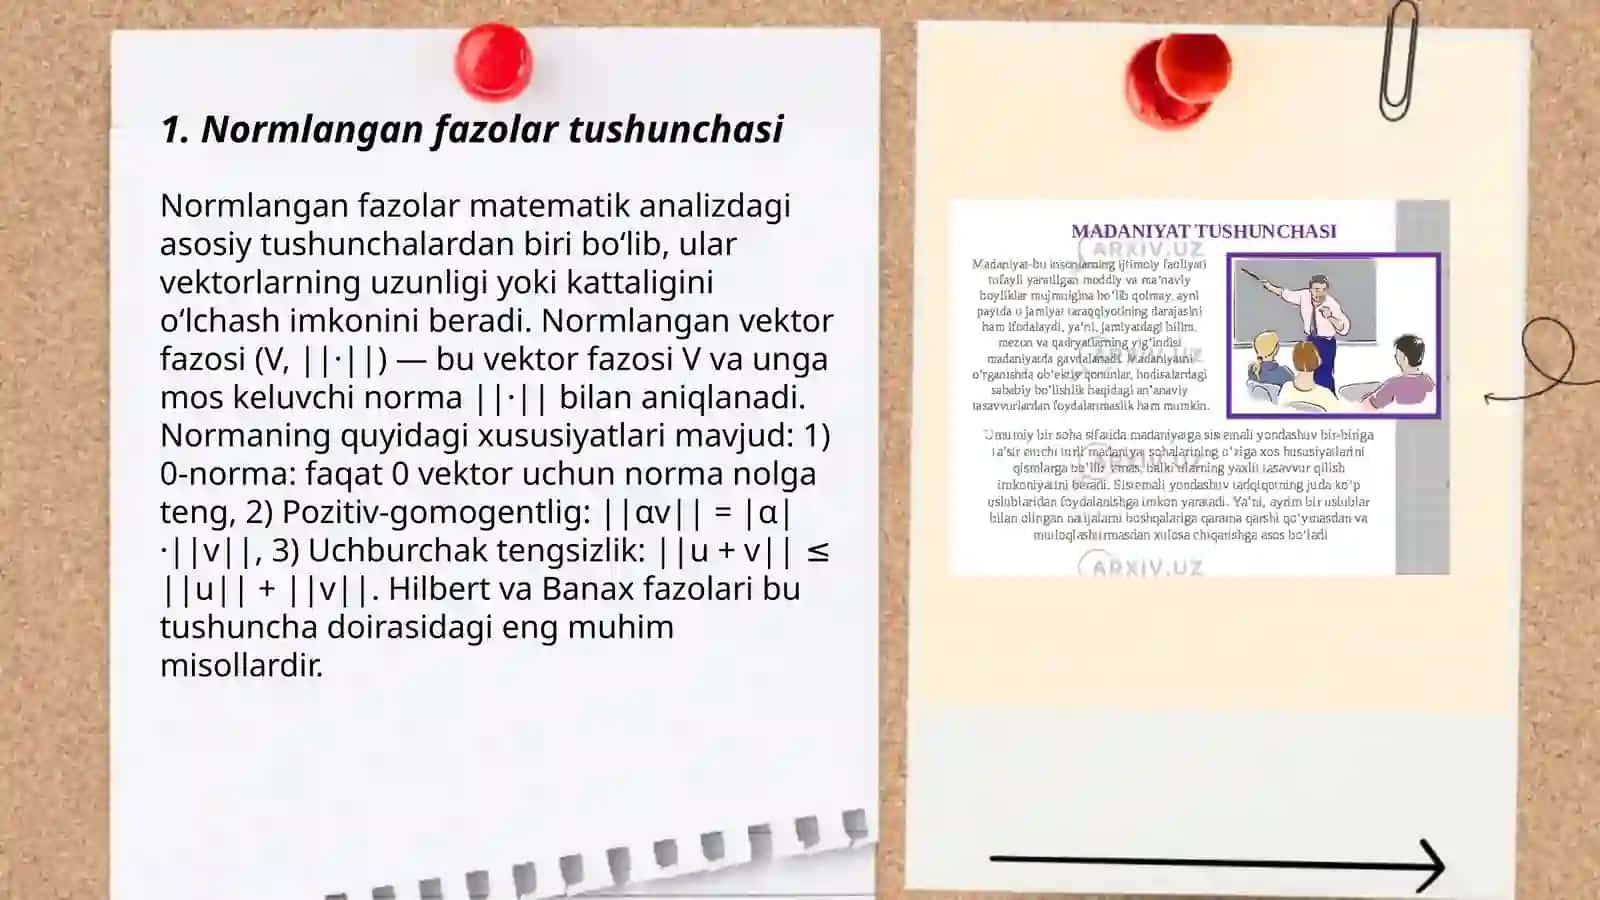 1. Normlangan fazolar tushunchasi
Normlangan fazolar matematik analizdagi
asosiy tushunchalardan biri bo‘lib, ular
vektorlarning uzunligi yoki kattaligini
o‘lchash imkonini beradi. Normlangan vektor
fazosi (V, ||·||) — bu vektor fazosi V va unga
mos keluvchi norma ||·|| bilan aniqlanadi.
Normaning quyidagi xususiyatlari mavjud: 1)
0-norma: faqat 0 vektor uchun norma nolga
teng, 2) Pozitiv-gomogentlig: ||αv|| = |α|
·||v||, 3) Uchburchak tengsizlik: ||u + v|| ≤
||u|| + ||v||. Hilbert va Banax fazolari bu
tushuncha doirasidagi eng muhim
misollardir.
MADANIYAT TUSHUNCHASI
ARXIV.UZ
Madaniyat-bu insonlarning ijtimoiy faoliyati
tufayli yaratilgan moddiy va ma’naviy
boyliklar mujmuigina bo‘lib qolmay, ayni
paytda u jamiyat taraqqiyotining darajasini
ham ifodalaydi, ya’ni, jamiyatdagi bilim,
mezon va qadryatlarning yig‘indisi
madaniyatda gavdalanadi. Madaniyatni
o‘rganishda ob’ektiv qonunlar, hodisalardagi
sababiy bo‘lishlik haqidagi an’anaviy
tasavvurlardan foydalanmaslik ham mumkin.
Umumiy bir soha sifatida madaniyatga sistemali yondashuv bir-biriga
ta’sir etuchi turli madaniya sohalarining o‘ziga xos hususiyatlarini
qismlarga bo‘lib emas, balki ularning yaxlit tasavvur qilish
imkoniyatini beradi. Sistemali yondashuv tadqiqotning juda ko‘p
uslublaridan foydalanishga imkon yaratadi. Ya’ni, ayrim bir uslublar
bilan olingan natijalarni boshqalariga qarama qarshi qo‘ymasdan va
mutloqlashtirmasdan xulosa chiqarishga asos bo‘ladi
ARXIV.UZ